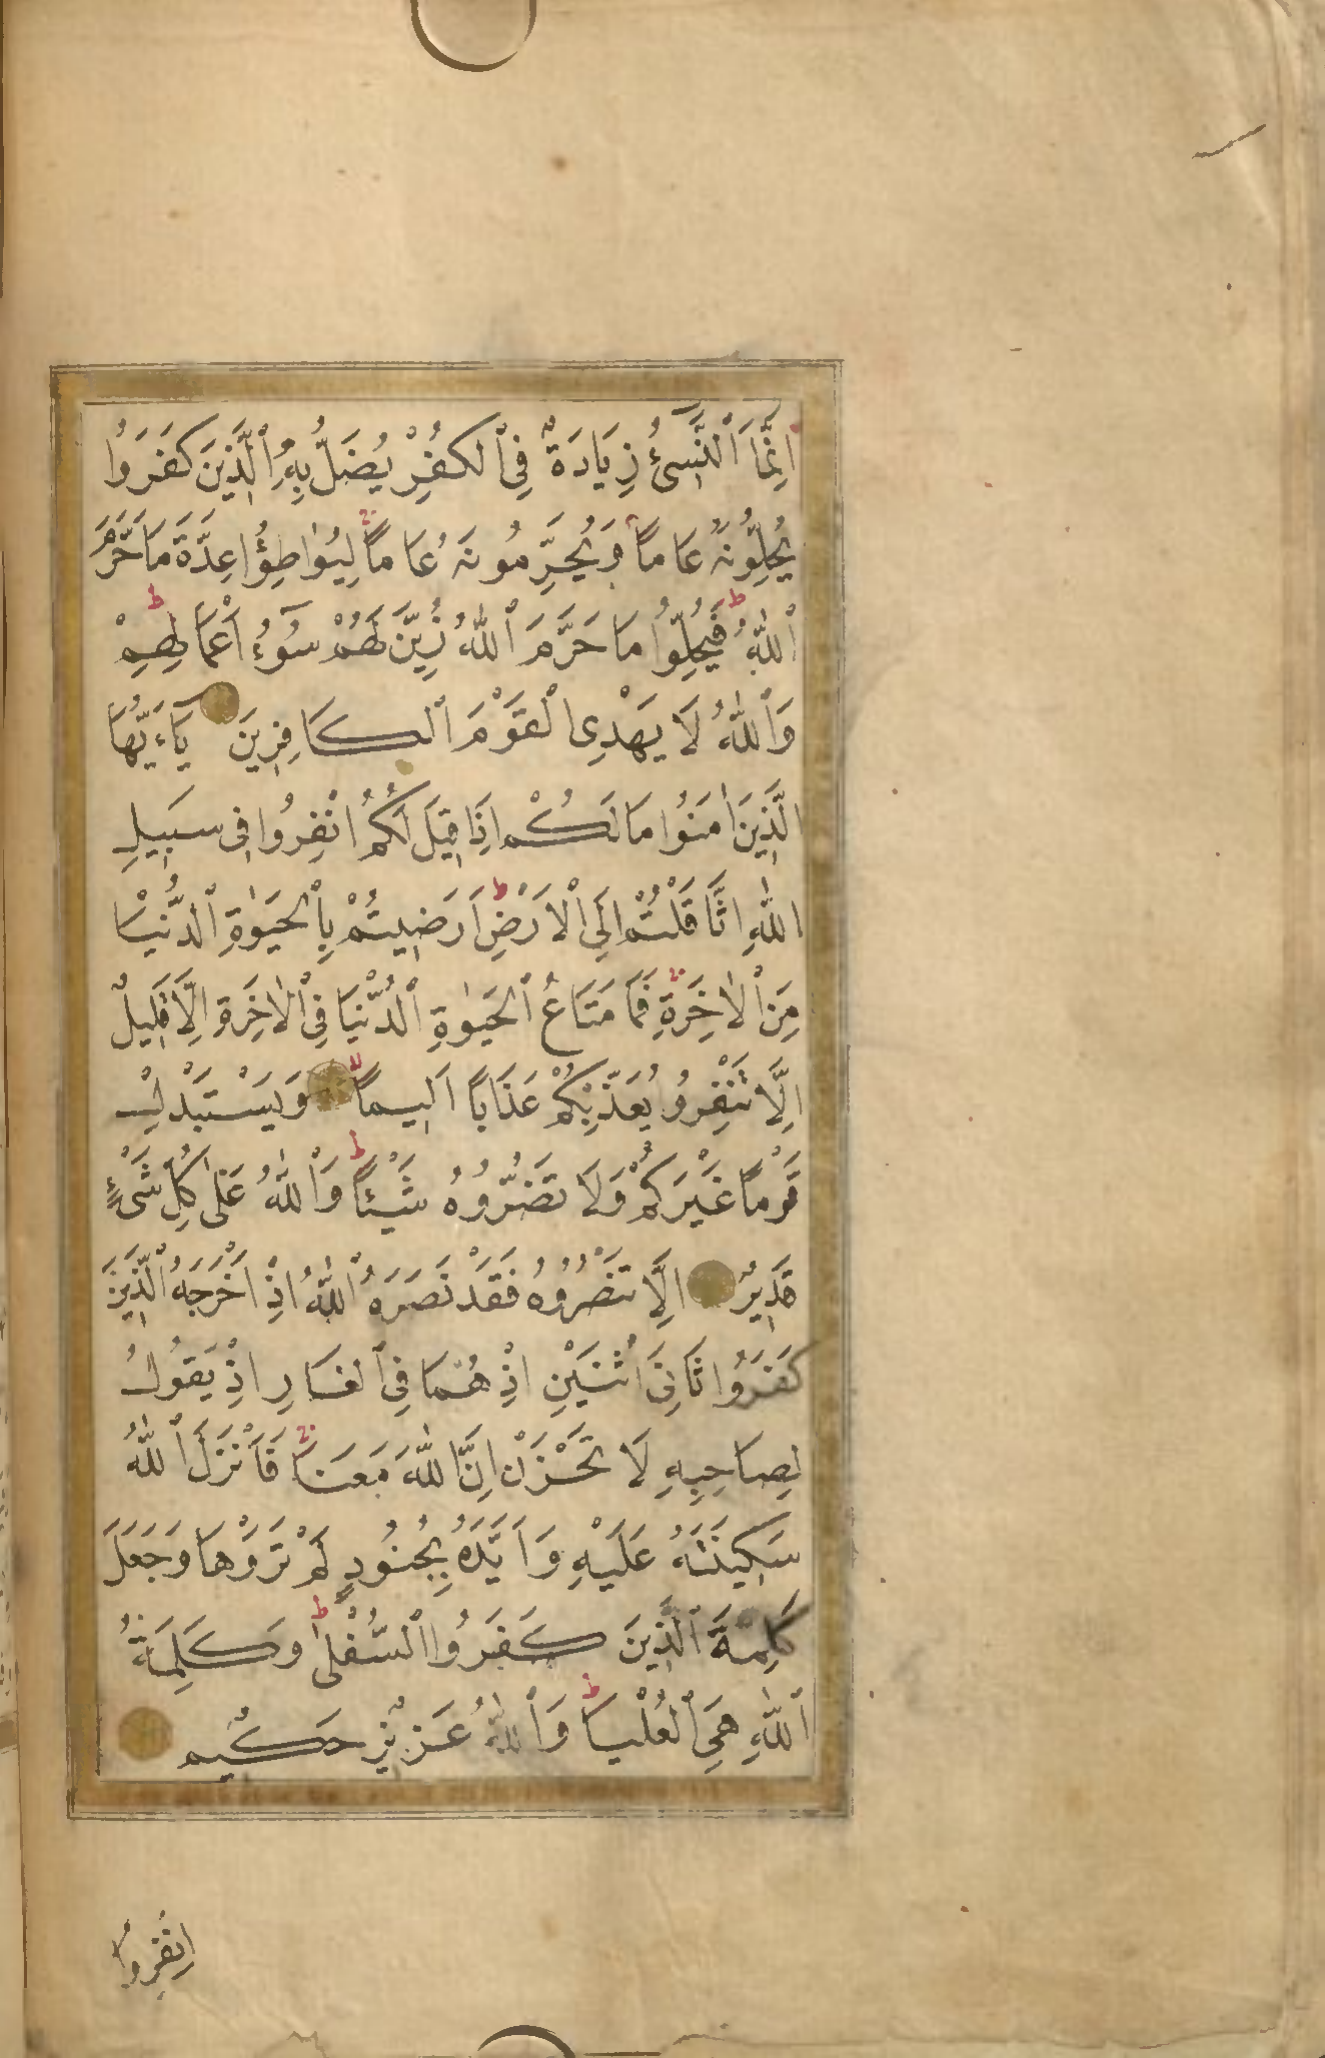 اِنَّمَا ٱلنَّسِىٓءُ زِيَادَةٌ فِى ٱلْكُفْرِ يُضَلُّ بِهِ ٱلَّذِينَ كَفَرُوا
يُحِلُّونَهُ عَامًا وَيُحَرِّمُونَهُ عَامًا لِيُوَاطِؤُا عِدَّةَ مَا حَرَّمَ
ٱللّٰهُ فَيُحِلُّوا مَا حَرَّمَ ٱللّٰهُ زُيِّنَ لَهُمْ سُوٓءُ اَعْمَالِهِمْ
وَٱللّٰهُ لَا يَهْدِى ٱلْقَوْمَ ٱلْكَافِرِينَ يَآءَيُّهَا
الَّذِينَ اٰمَنُوا مَا لَكُمْ اِذَا قِيلَ لَكُمُ انْفِرُوا فِى سَبِيلِ
اللّٰهِ اثَّاقَلْتُمْ اِلَى ٱلْاَرْضِ اَرَضِيتُمْ بِٱلْحَيٰوةِ ٱلدُّنْيَا
مِنَ ٱلْاٰخِرَةِ فَمَا مَتَاعُ ٱلْحَيٰوةِ ٱلدُّنْيَا فِى ٱلْاٰخِرَةِ اِلَّا قَلِيلٌ
اِلَّا تَنْفِرُو يُعَذِّبْكُمْ عَذَابًا اَلِيمًا وَيَسْتَبْدِلْ
قَوْمًا غَيْرَكُمْ وَلَا تَضُرُّوهُ شَيْئًا وَٱللّٰهُ عَلٰى كُلِّ شَىْءٍ
قَدِيرٌ اِلَّا تَنْصُرُوهُ فَقَدْ نَصَرَهُ ٱللّٰهُ اِذْ اَخْرَجَهُ ٱلَّذِينَ
كَفَرُوا ثَانِىَ اثْنَيْنِ اِذْ هُمَا فِى ٱلْغَارِ اِذْ يَقُولُ
لِصَاحِبِهِ لَا تَحْزَنْ اِنَّ اللّٰهَ مَعَنَا فَاَنْزَلَ ٱللّٰهُ
سَكِينَتَهُ عَلَيْهِ وَاَيَّدَهُ بِجُنُودٍ لَمْ تَرَوْهَا وَجَعَلَ
كَلِمَةَ ٱلَّذِينَ كَفَرُوا ٱلسُّفْلٰى وَكَلِمَةُ
ٱللّٰهِ هِىَ ٱلْعُلْيَا وَٱللّٰهُ عَزِيزٌ حَكِيمٌ
اِنْفِرُوا